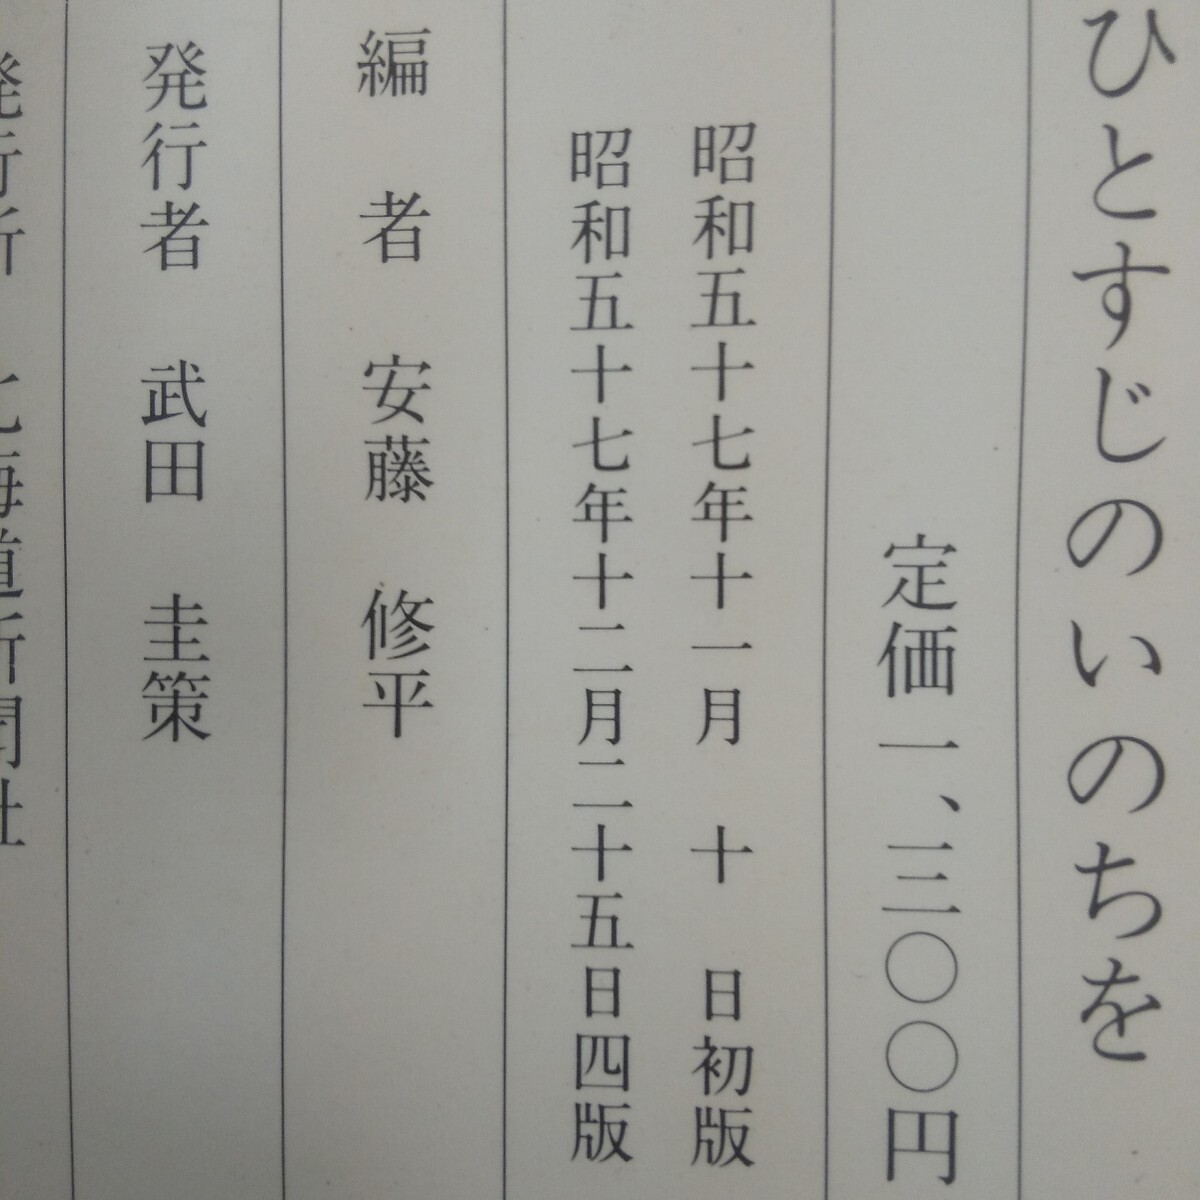 ひとすじのいのちを
定価一、三〇〇円
昭和五十七年十一月 十 日初版
昭和五十七年十二月二十五日四版
編 者 安藤 修平
発行者 武田 圭策
発行所 北海道新聞社